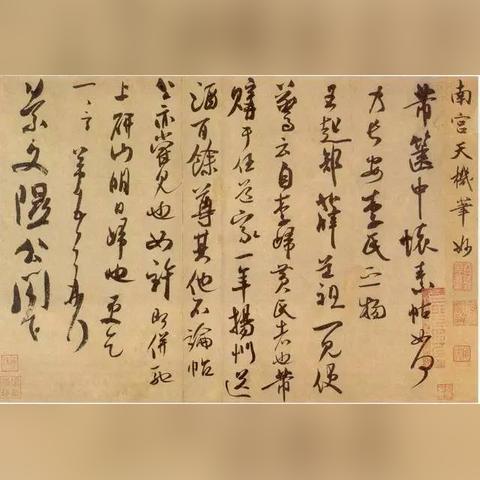 南宮天機筆妙
芾篋中懷素帖如何
乃長安李氏之物
王起部薛道祖一見便
驚云自李歸黃氏者也芾
購于任道家一年揚州送
酒百餘尊其他不論帖
公亦嘗見也如許即併馳
上研山明日歸也更乞
一言芾頓首再拜
景文隰公閣下